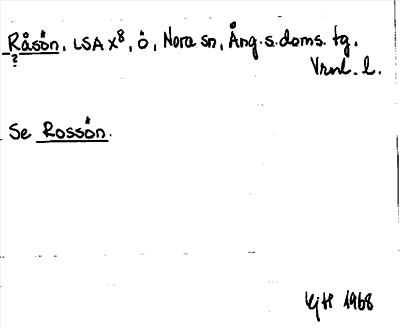 Råsön, LSA X8, ö, Nora sn, Ång. s. doms. tg.
?
Vrml. l.
Se Rossön.
KjH 1968